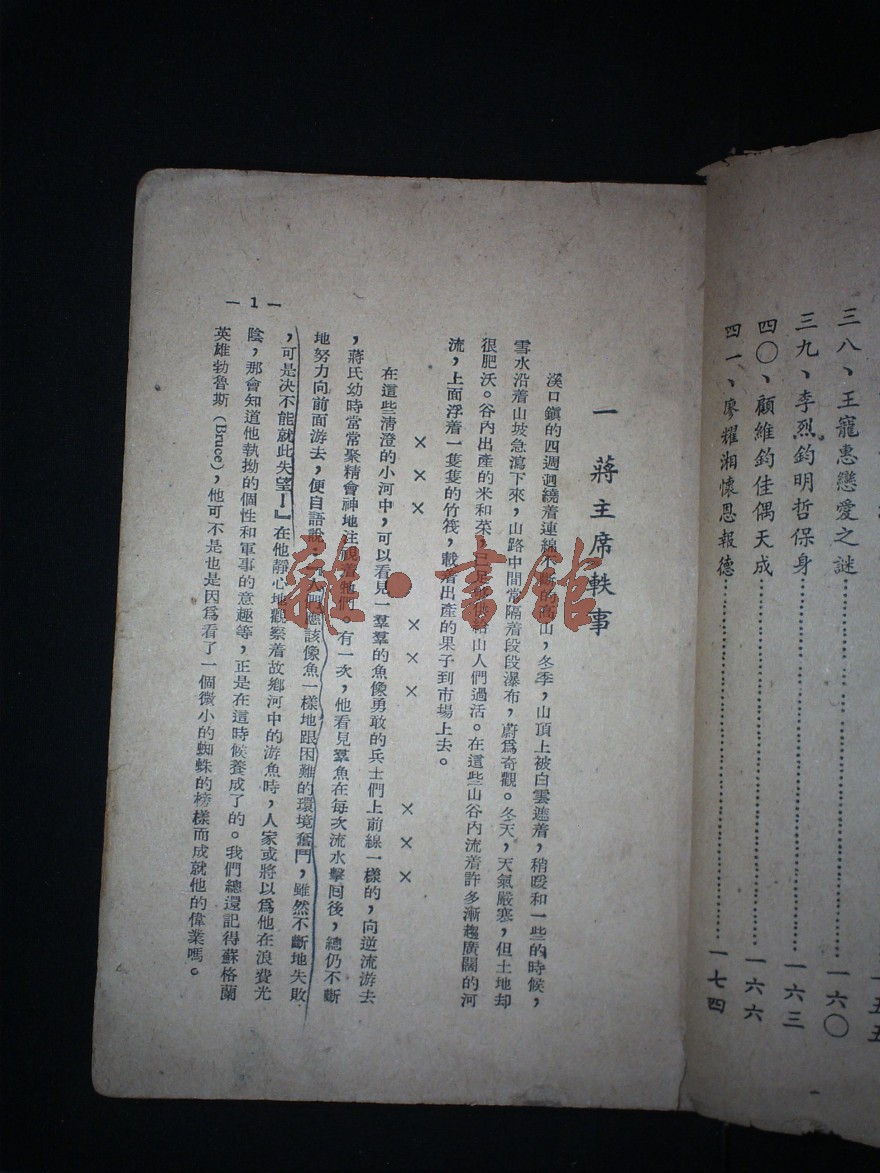 五五
三八、王寵惠戀愛之謎……一六〇
三九、李烈鈞明哲保身……一六三
四〇、顧維鈞佳偶天成……一六六
四一、廖耀湘懷恩報德……一七四
一 蔣主席軼事
溪口鎮的四週迴繞着連綿不斷的高山，冬季，山頂上被白雲遮着，稍暖和一些的時候，
雪水沿着山坡急瀉下來，山路中間常隔着段段瀑布，蔚爲奇觀。冬天，天氣嚴寒，但土地却
很肥沃。谷內出產的米和菜，已足够供給山人們過活。在這些山谷內流着許多漸趨廣闊的河
流，上面浮着一隻隻的竹筏，載着出產的果子到市場上去。
××× ××× ×××
在這些清澄的小河中，可以看見一羣羣的魚像勇敢的兵士們上前線一樣的，向逆流游去
，蔣氏幼時常常聚精會神地注視着牠們。有一次，他看見羣魚在每次流水擊回後，總仍不斷
地努力向前面游去，便自語說：『人們應該像魚一樣地跟困難的環境奮鬥，雖然不斷地失敗
，可是决不能就此失望！』在他靜心地觀察着故鄉河中的游魚時，人家或將以爲他在浪費光
陰，那會知道他執拗的個性和軍事的意趣等，正是在這時候養成了的。我們總還記得蘇格蘭
英雄勃魯斯（Bruce），他可不是也是因爲看了一個微小的蜘蛛的榜樣而成就他的偉業嗎。
— 1 —
雜·書館